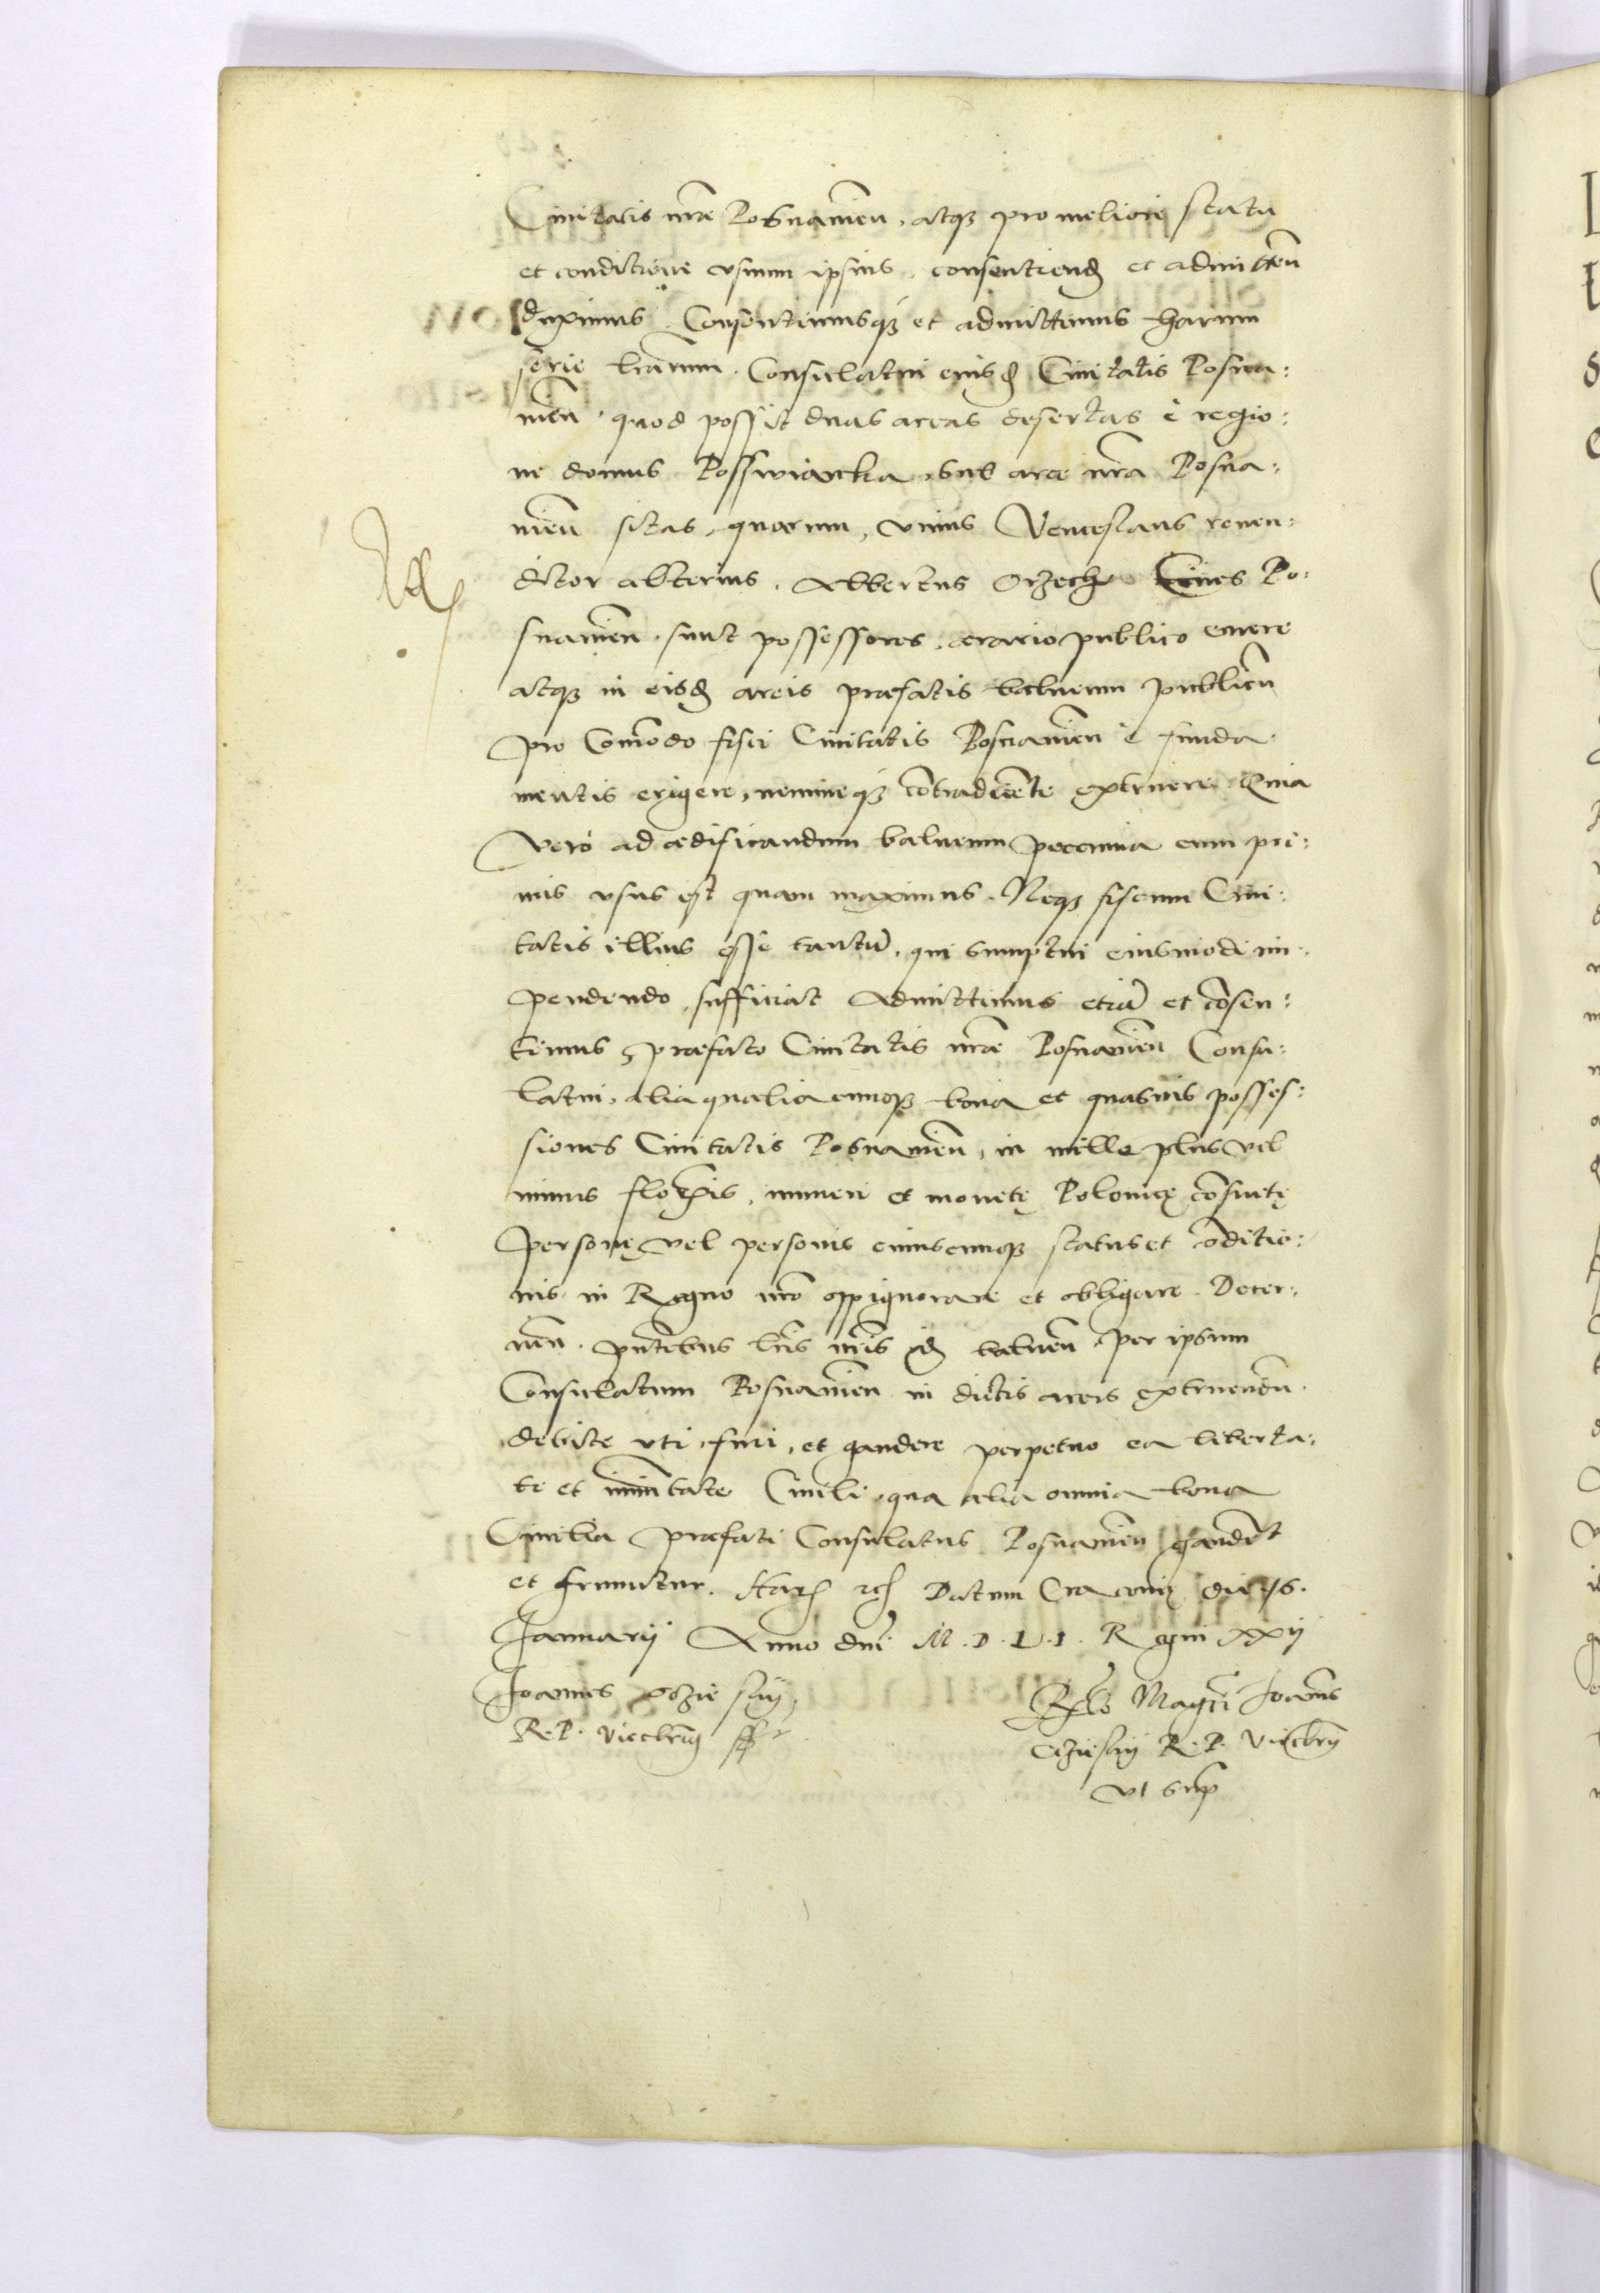 Ciuitatis nr̃ae Bosnanien̄, atq3 pro meliori statu
et conditione vsuum ipsius, consentiend et admitten̄
duximus. Consentimusq3 et admittimus harum
serie lr̃arum. Consulatui eiusd Ciuitatis Posna:
nien̄. quod possit duas areas desertas è regio:
ne domus sub arce nr̃a Posna:
nien̄ sitas, quarum, vnius Venceslaus reuen:
ditor alterius. Albertus Orzech Ciues Po:
snanien̄. sunt possessores, aerario publico emere
atq3 in eisd areis praefatis balneum publicũ
pro Com̃odo fisci Ciuitatis Posnanien̄ è funda:
mentis erigere, nemineq3 cõtradicẽte extruere Quia
vero ad aedificandum balneum pecunia cum pri:
mis vsus est quam maximus. Neq3 fiscum Ciui:
tatis illius esse tantũ, qui sumptui eiusmodi im:
pendendo, sufficiat Admittimus etiã et cõsen:
timus praefato Ciuitatis nr̃ae Posnanien̄ Consu:
latui, alia qualiacumq3 bona et quasuis posses:
siones Ciuitatis Posnanien̄, in mille plus vel
minus flo numeri et monetę Polonicę cõsuetę
personę vel personis cuiuscumq3 status et cõditio:
nis in Regno nr̃o oppignorare et obligare. Decer:
nen̄. pn̄tibus lr̃is nr̃is id balneũ per ipsum
Consulatum Posnanien̄ in dictis areis extruendũ
debite vti, frui, et gaudere perpetuo ea liberta:
te et im̃unitate Ciuili, qua alia omnia bona
Ciuilia praefati Consulatus Posnanien̄ gaudẽt
et fruuntur. Harũ Datum Cracouię die 16.
Januarij Anno dnĩ M.D.L.I. Regni XXIJ
Joannes
R.P. Vicecan̄ ssp̃t
Relo Magci Joan̄nis
R.P. Vicecan̄
vt sup̃